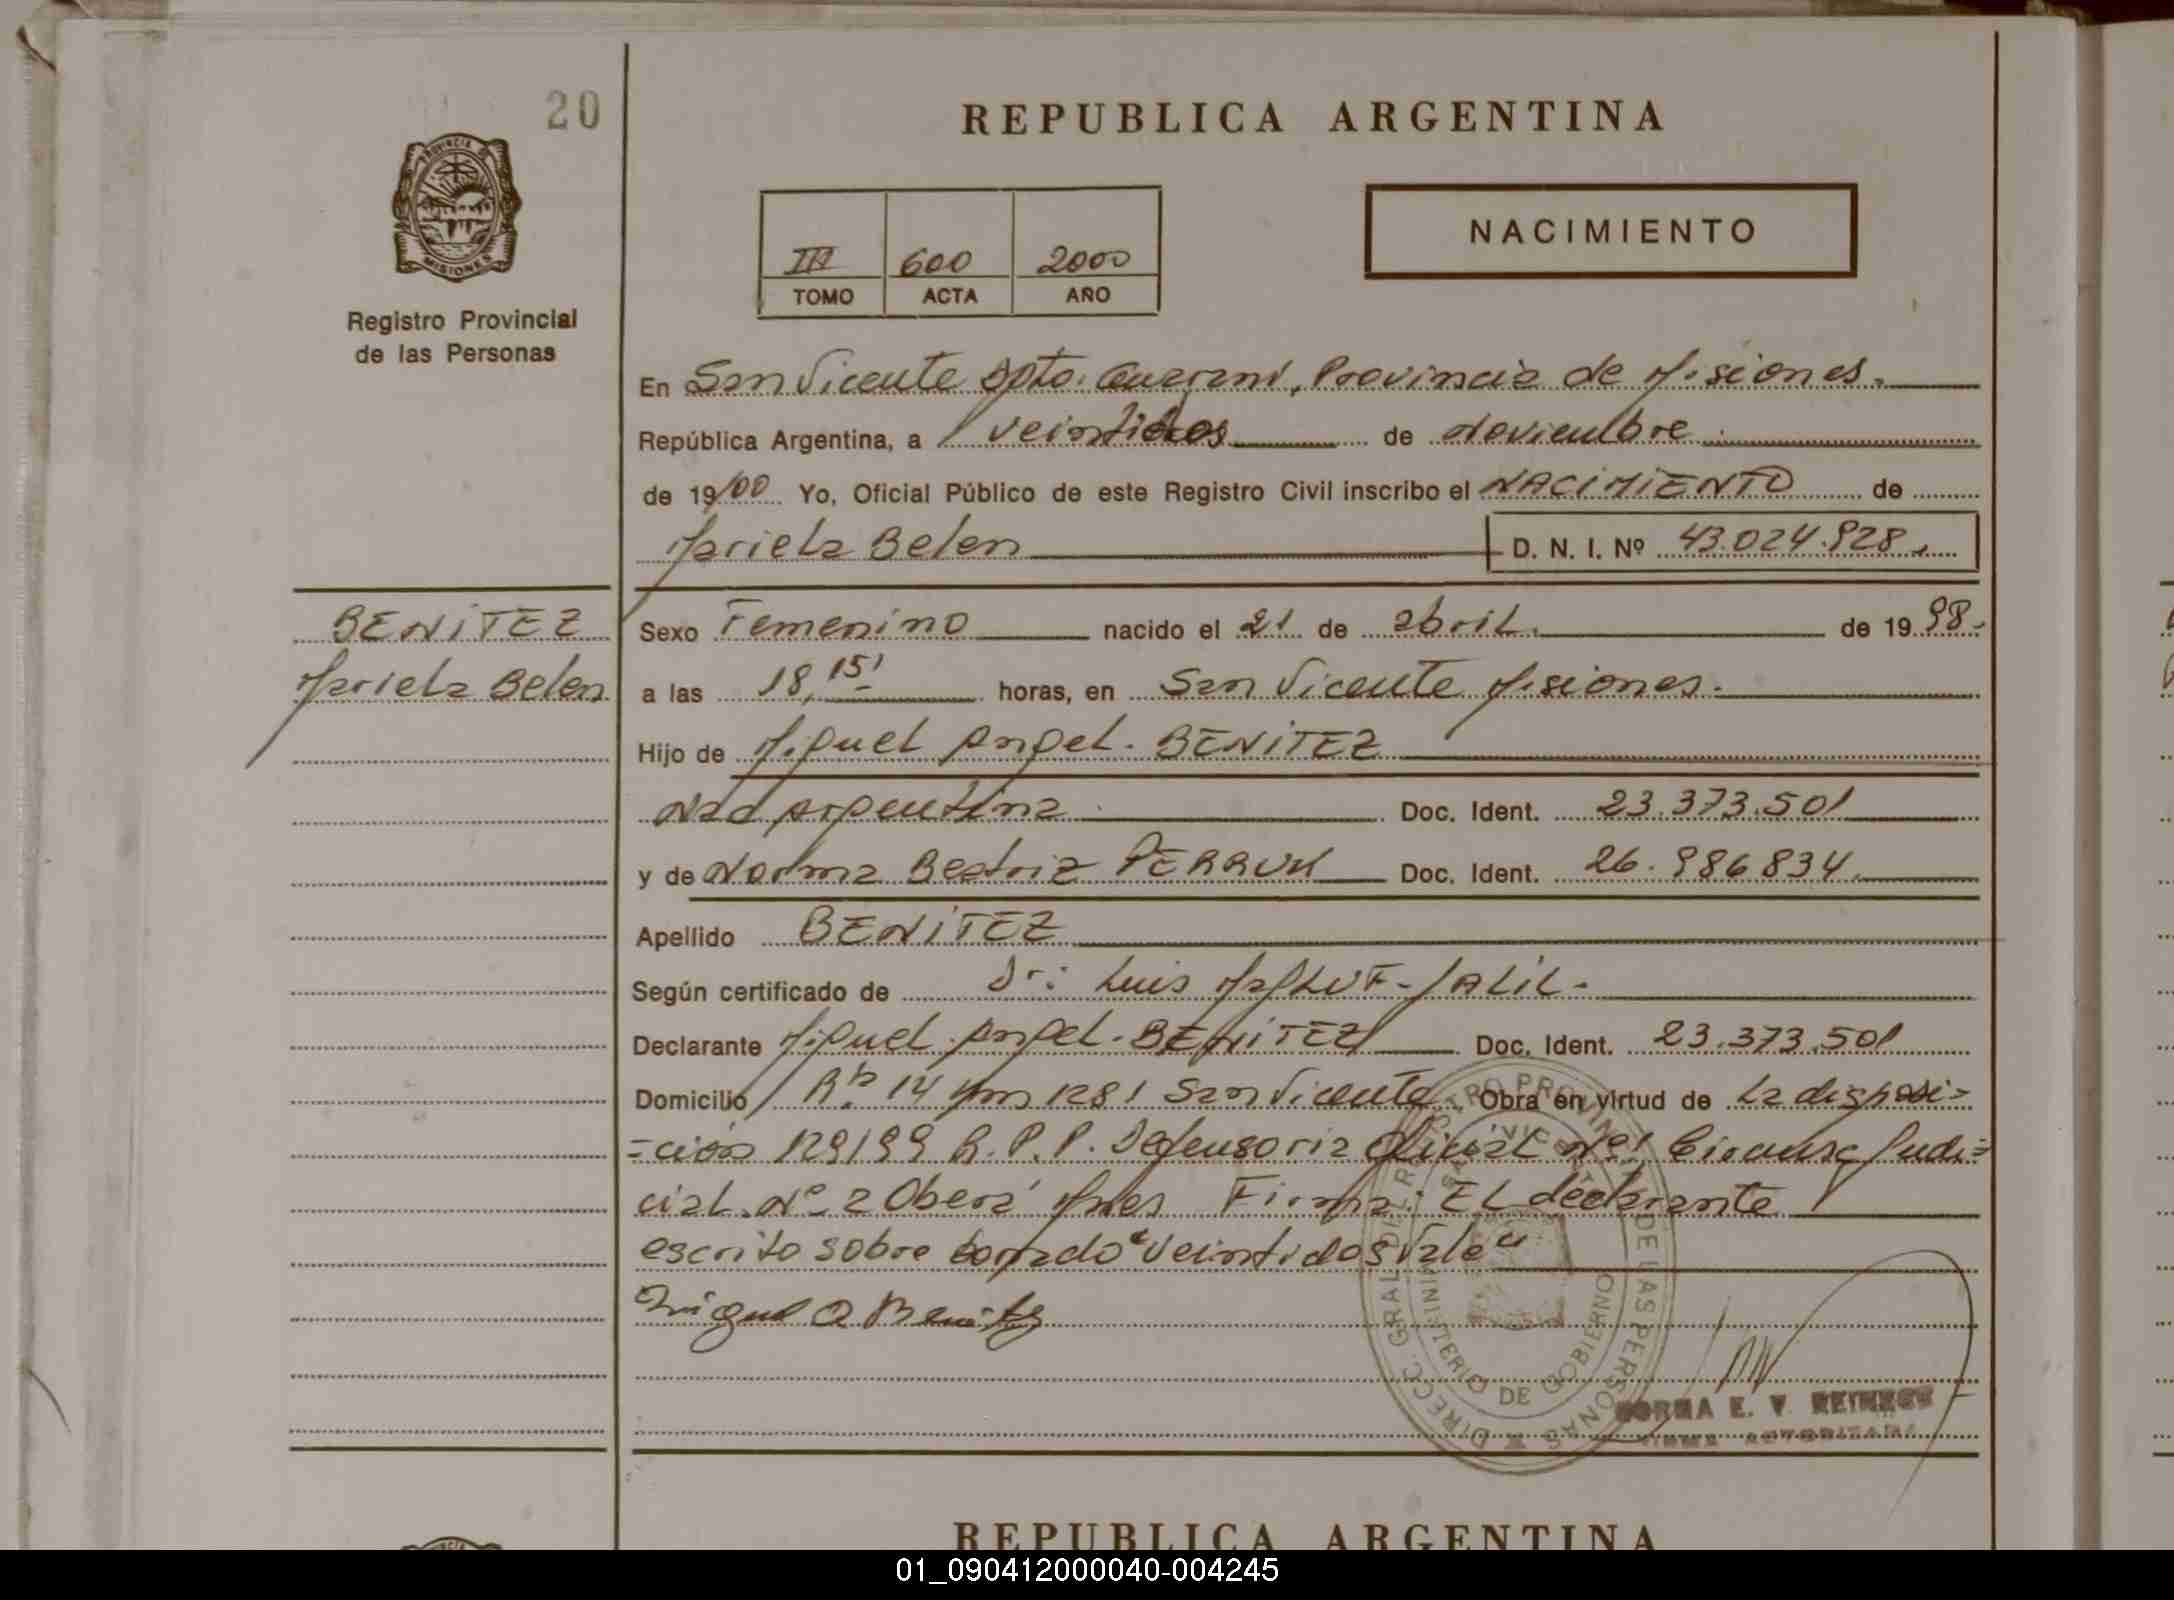 20
REPUBLICA ARGENTINA
PROVINCIA DE
MISIONES
Registro Provincial
de las Personas
III 600 2000
TOMO ACTA AÑO
NACIMIENTO
En San Vicente Dpto. Guaraní, Provincia de Misiones.
República Argentina, a veintidos de Noviembre
de 19/00 Yo, Oficial Público de este Registro Civil inscribo el NACIMIENTO de
Mariela Belen D. N. I. Nº 43.024.928.
BENITEZ
Mariela Belen
Sexo Femenino nacido el 21 de abril. de 19 98.
a las 18,15' horas, en San Vicente Misiones.
Hijo de Miguel Angel. BENITEZ
Nac Argentina. Doc. Ident. 23.373.501
y de Norma Beatriz PERRUK Doc. Ident. 26.986834.
Apellido BENITEZ
Según certificado de Dr: Luis MALUF-JALIL.
Declarante Miguel Angel. BENITEZ Doc. Ident. 23.373.501
Domicilio Rta 14 Km 1281 San Vicente Obra en virtud de La disposi=
=ción 129/99 R.P.P. Defensoria Oficial Nº1 Circunsc Judi=
cial. Nº 2 Oberá Mnes Firma: El declarante
escrito sobre borrado "veintidos Vale"
Miguel A Benitez
DIRECC. GRAL. DEL REGISTRO PROVINCIAL DE LAS PERSONAS
SAN VICENTE
MINISTERIO DE GOBIERNO
NORMA E. V. REINECK
FIRMA AUTORIZADA
REPUBLICA ARGENTINA
01_090412000040-004245